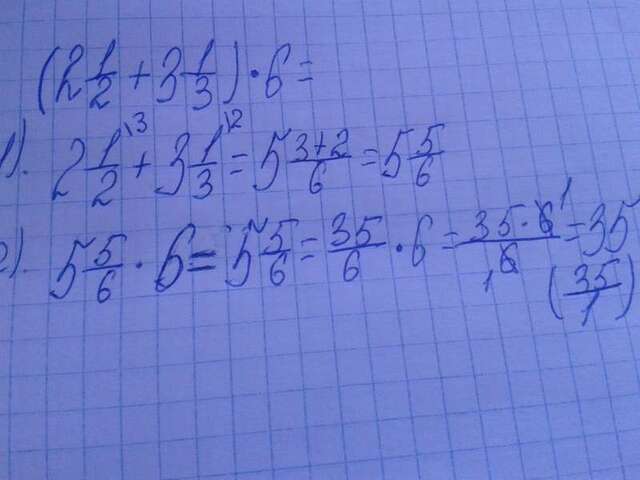 (2 1/2 + 3 1/3) · 6 =
1). 2 1/2 \3 + 3 1/3 \2 = 5 3+2/6 = 5 5/6
2). 5 5/6 · 6 = 5 5/6 = 35/6 · 6 = 35 · 6 1/1 6 = 35
(35/1)